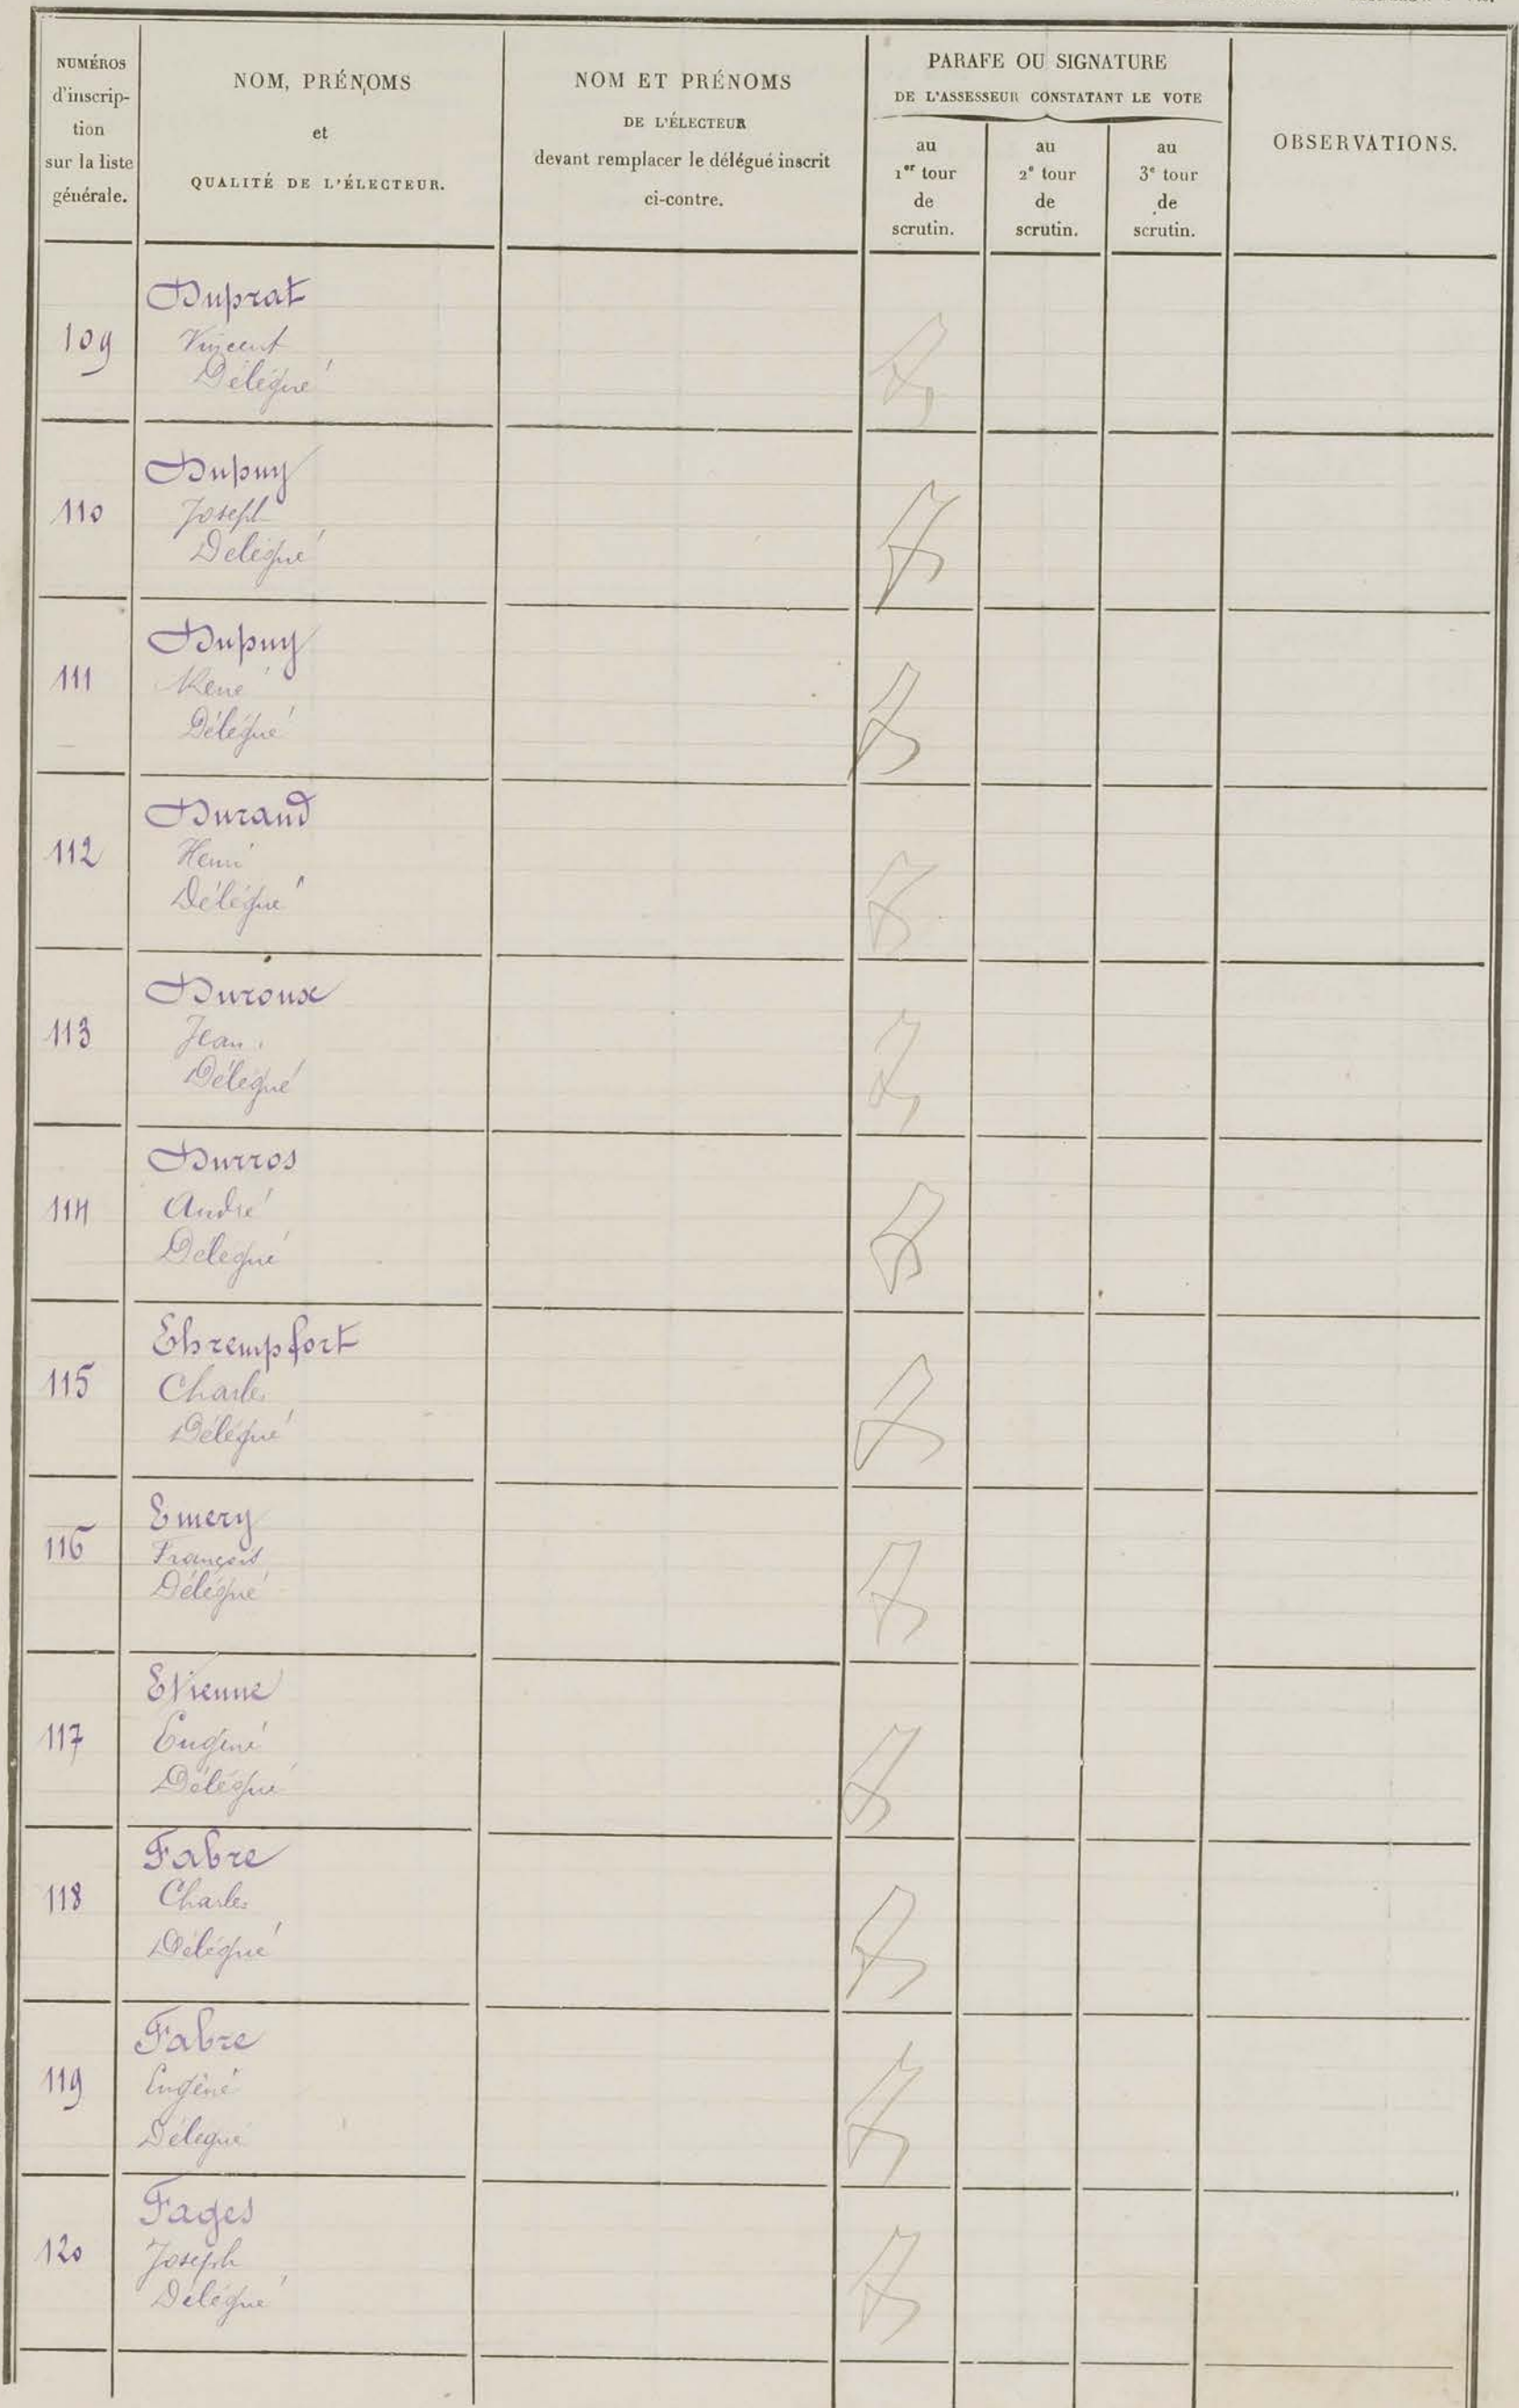 NUMÉROS
d'inscrip-
tion
sur la liste
générale.
NOM, PRÉNOMS
et
QUALITÉ DE L'ÉLECTEUR.
NOM ET PRÉNOMS
DE L'ÉLECTEUR
devant remplacer le délégué inscrit
ci-contre.
PARAFE OU SIGNATURE
DE L'ASSESSEUR CONSTATANT LE VOTE
au
1er tour
de
scrutin.
au
2e tour
de
scrutin.
au
3e tour
de
scrutin.
OBSERVATIONS.
Duprat
109 Vincent
Délégué
Dupuy
110 Joseph
Délégué
Dupuy
111 René
Délégué
Durand
112 Henri
Délégué
Duroux
113 Jean
Délégué
Durros
114 André
Délégué
Ehrempfort
115 Charles
Délégué
Emery
116 François
Délégué
Etienne
117 Eugène
Délégué
Fabre
118 Charles
Délégué
Fabre
119 Eugène
Délégué
Fages
120 Joseph
Délégué